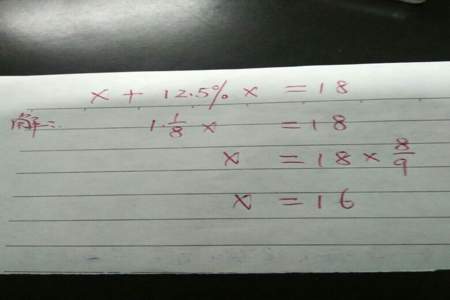 x + 12.5% x = 18
解: 1 1/8 x = 18
x = 18 × 8/9
x = 16